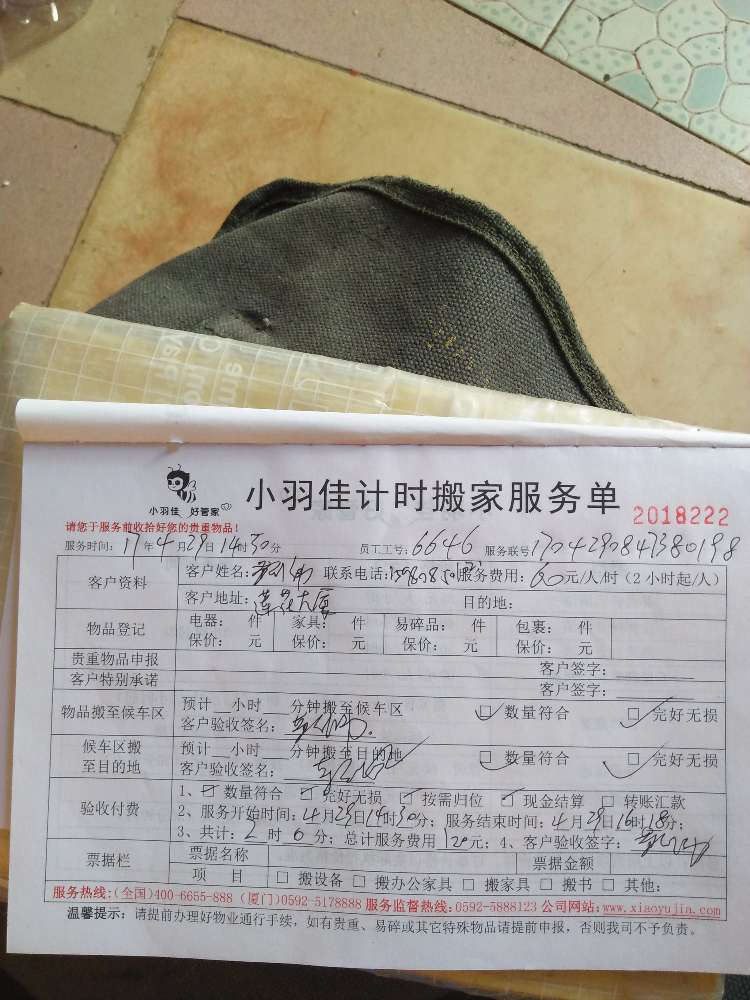 小羽佳 好管家
小羽佳计时搬家服务单
2018222
请您于服务前收拾好您的贵重物品！
服务时间：17年4月29日14时30分 员工工号：6646 服务联号1704290847380198
客户资料
客户姓名： 联系电话： 服务费用：60元/人/时（2小时起/人）
客户地址：莲花大厦 目的地：
物品登记
电器： 件 家具： 件 易碎品： 件 包裹： 件
保价： 元 保价： 元 保价： 元 保价： 元
贵重物品申报 客户签字：
客户特别承诺 客户签字：
物品搬至候车区
预计 小时 分钟搬至候车区 数量符合 完好无损
客户验收签名：
候车区搬至目的地
预计 小时 分钟搬至目的地 数量符合 完好无损
客户验收签名：
验收付费
1、 数量符合 完好无损 按需归位 现金结算 转账汇款
2、服务开始时间：4月29日14时30分；服务结束时间：4月29日16时18分；
3、共计：2时0分；总计服务费用120元；4、客户验收签字：
票据栏
票据名称 票据金额
项 目 搬设备 搬办公家具 搬家具 搬书 其他：
服务热线：(全国)400-6655-888 (厦门)0592-5178888 服务监督热线：0592-5888123 公司网站：www.xiaoyujia.com
温馨提示：请提前办理好物业通行手续，如有贵重、易碎或其它特殊物品请提前申报，否则我司不予负责。